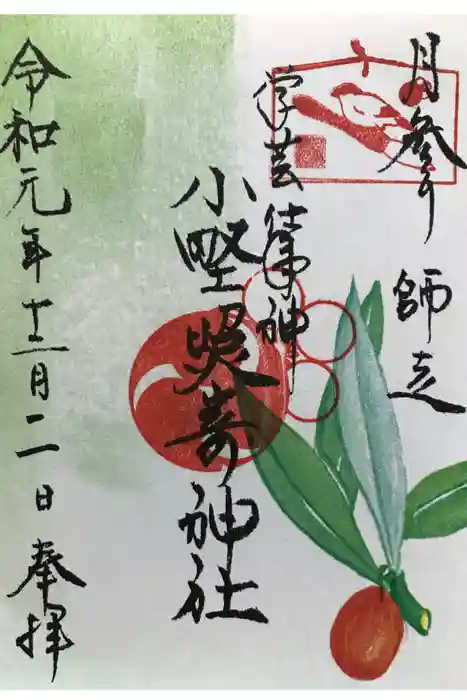 月参り 師走
学芸 神
小野照嵜神社
令和元年十二月二日 奉拝